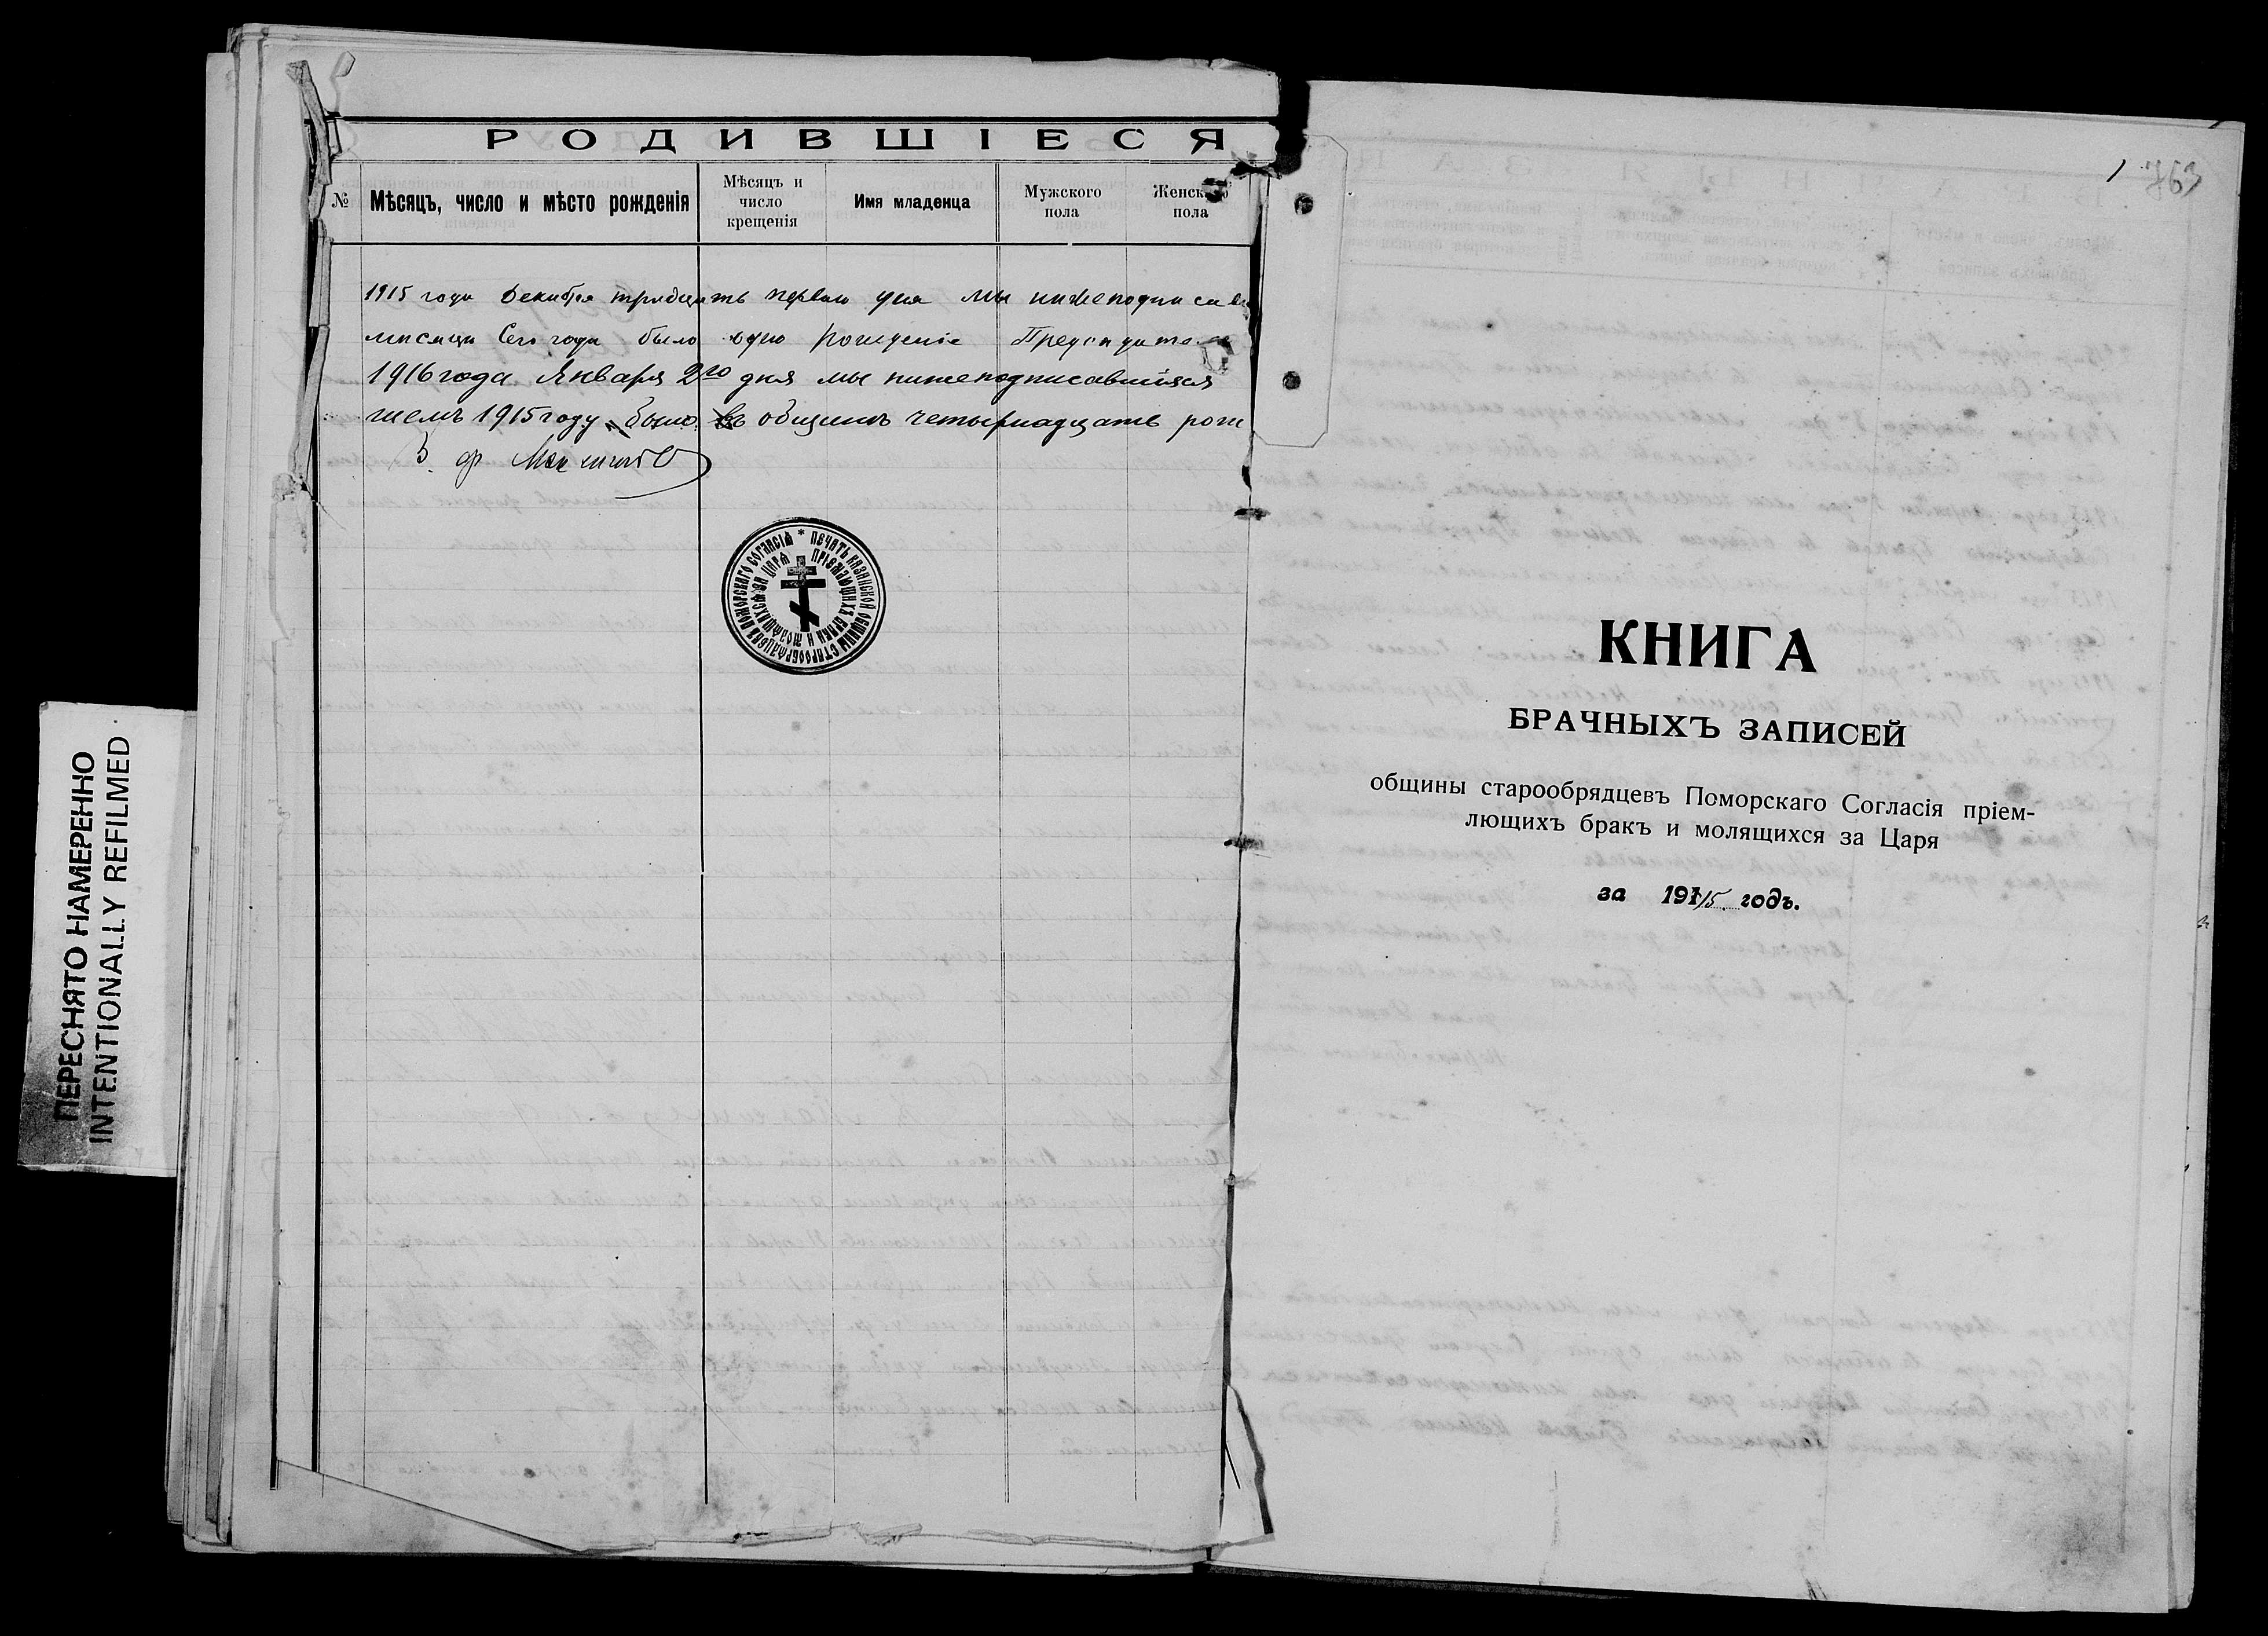 ПЕРЕСНЯТО НАМЕРЕННО
INTENTIONALLY REFILMED
РОДИВШІЕСЯ
№ Мѣсяцъ, число и мѣсто рожденія Мѣсяцъ и число крещенія Имя младенца Мужского пола Женского пола
1915 года Декабря тридцать перваго дня мы нижеподписав
месяца Сего года было одно рожденіе Председатель
1916 года Января 2го дня мы нижеподписавшіяся
шемъ 1915 году было въ общинѣ четырнадцать рож
ПЕЧАТЬ КАЗАНСКОЙ ОБЩИНЫ СТАРООБРЯДЦЕВЪ ПОМОРСКАГО СОГЛАСІЯ *
ПРІЕМЛЮЩИХЪ БРАКИ И МОЛЯЩИХСЯ ЗА ЦАРЯ
763
КНИГА
БРАЧНЫХЪ ЗАПИСЕЙ
общины старообрядцевъ Поморскаго Согласія пріем-
лющихъ бракъ и молящихся за Царя
за 1915 годъ.